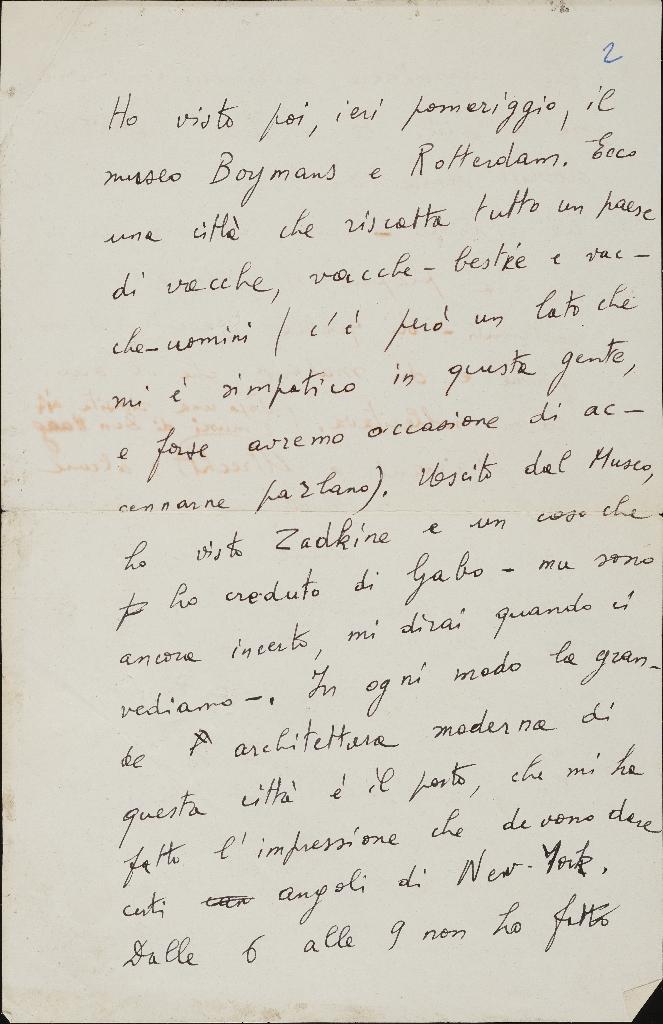 2
Ho visto poi, ieri pomeriggio, il
museo Boymans e Rotterdam. Ecco
una città che riscatta tutto un paese
di vacche, vacche-bestie e vac-
che-uomini (c'è però un lato che
mi è simpatico in questa gente,
e forse avremo occasione di ac-
cennarne parlano). Uscito dal Museo,
ho visto Zadkine e un coso che
ho creduto di Gabo - ma sono
ancora incerto, mi dirai quando ci
vediamo -. In ogni modo la gran-
de architettura moderna di
questa città è il porto, che mi ha
fatto l'impressione che devono dare
certi angoli di New-York.
Dalle 6 alle 9 non ho fatto